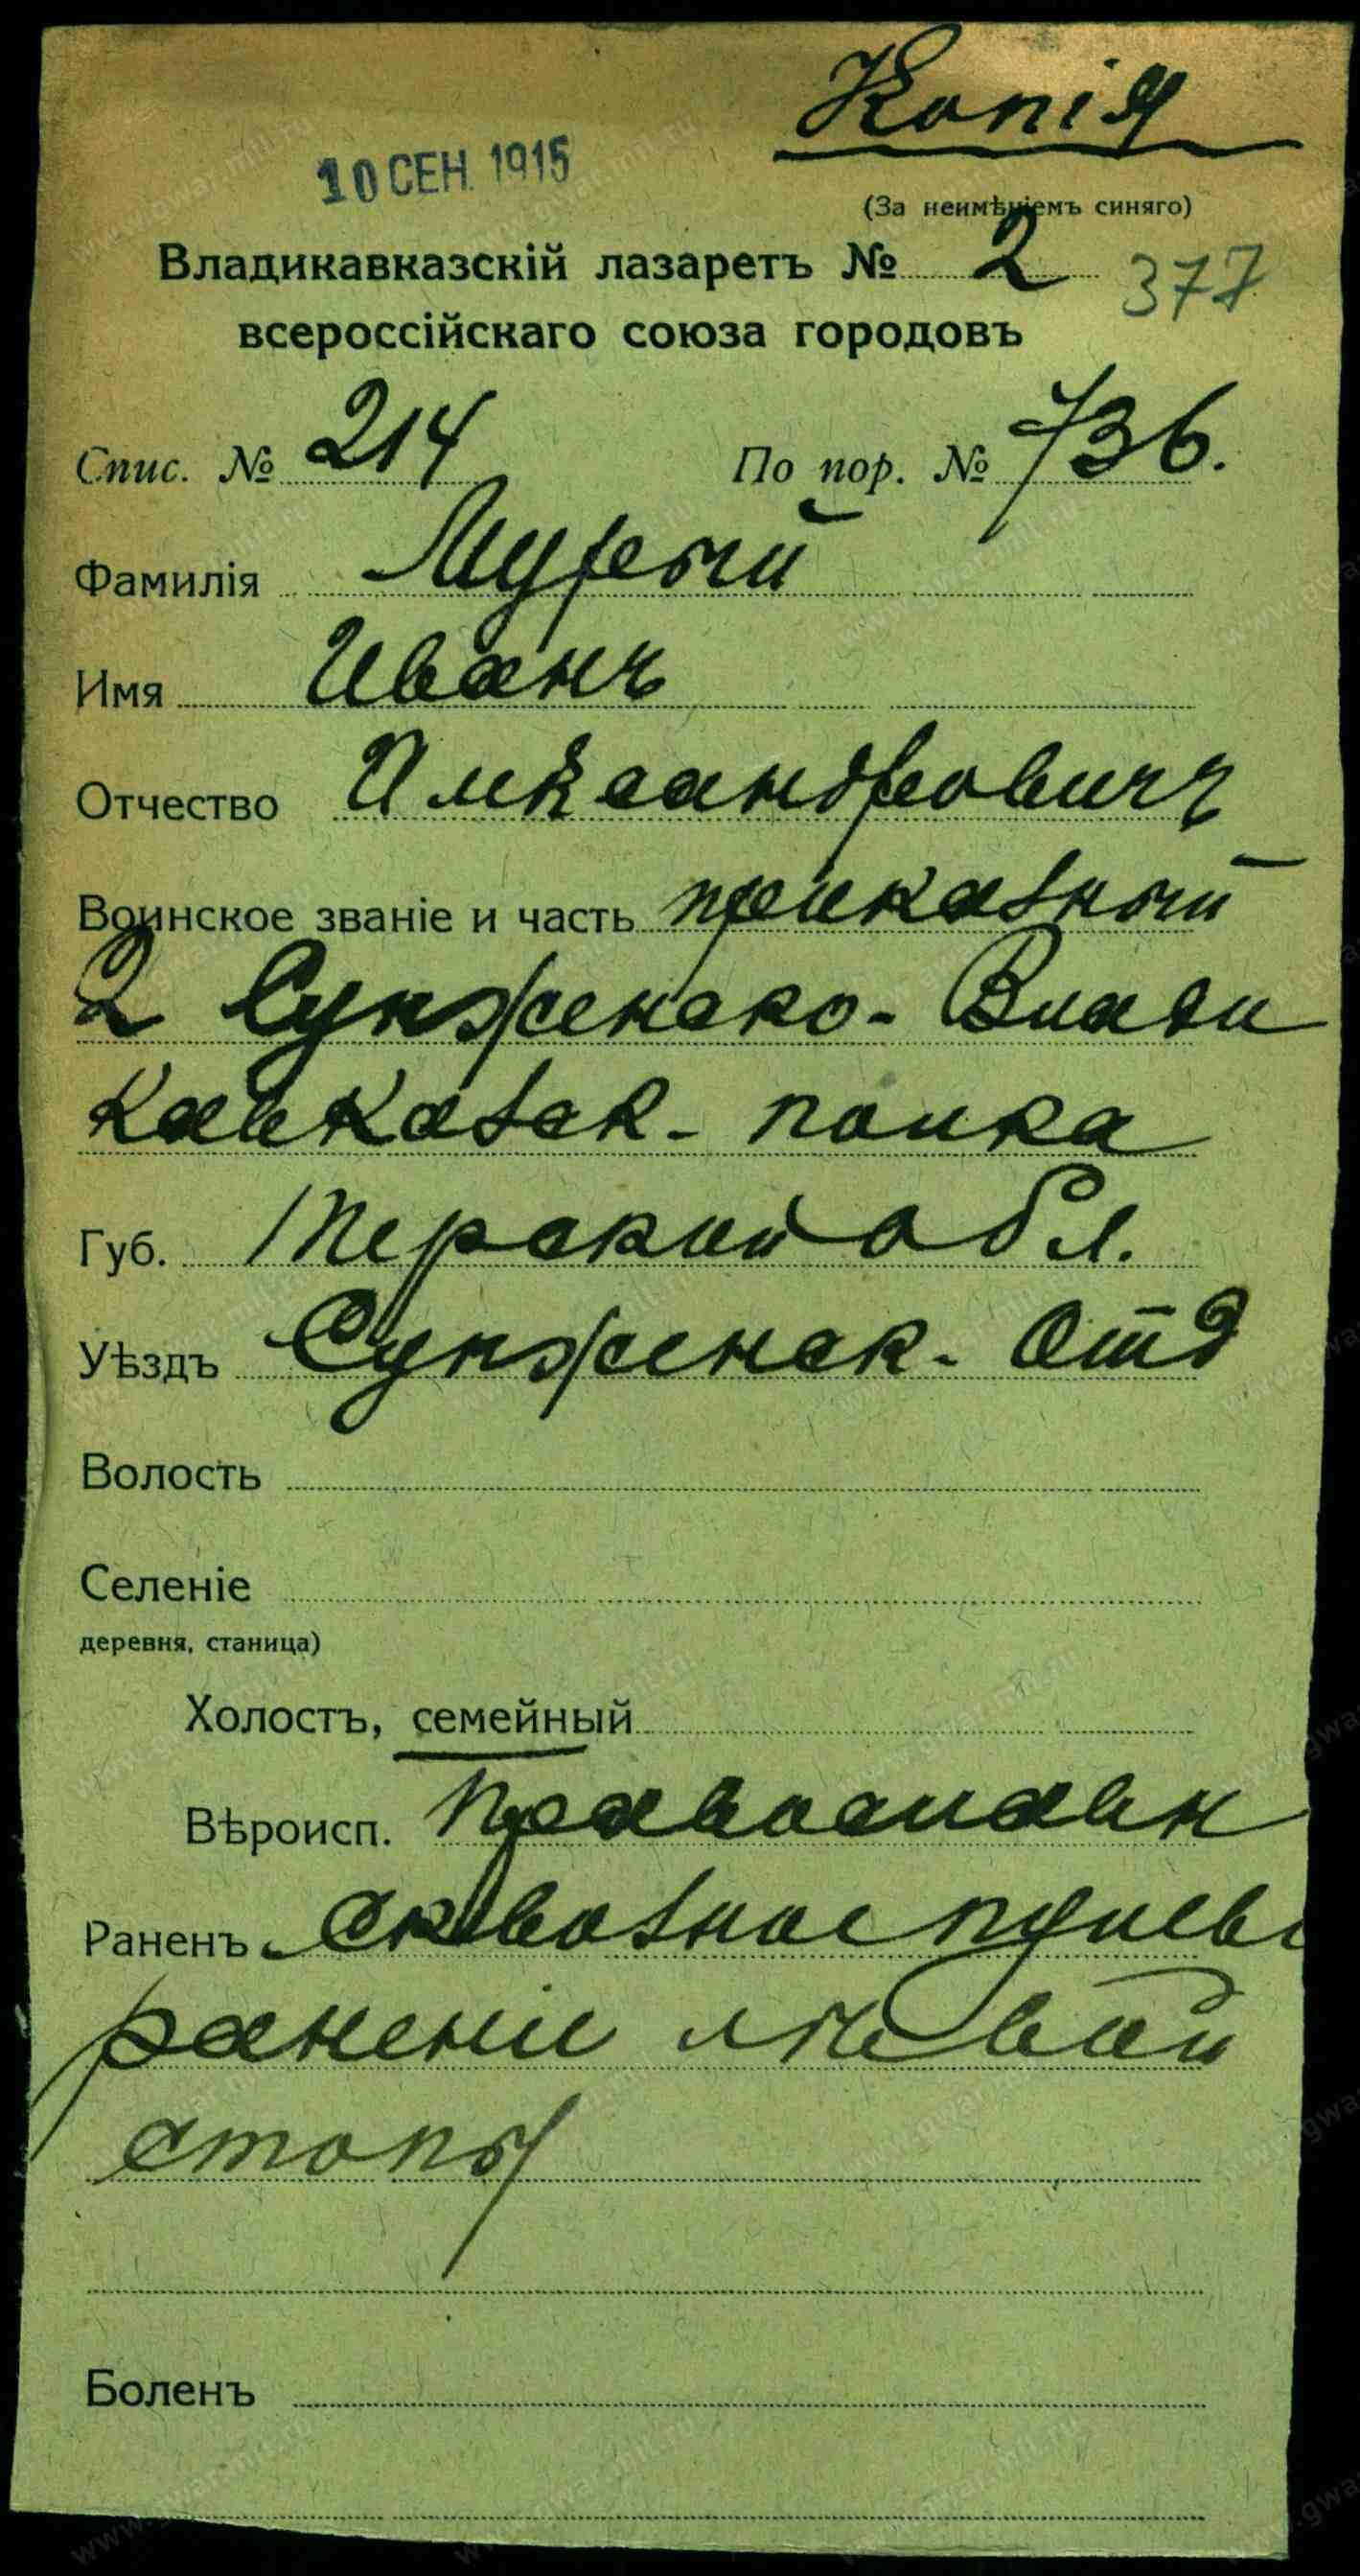 Копія
10 СЕН. 1915
(За неимѣніемъ синяго)
Владикавказскій лазаретъ № 2 377
всероссійскаго союза городовъ
Спис. № 214 По пор. № 736.
Фамилія Мурый
Имя Иванъ
Отчество Александровичъ
Воинское званіе и часть приказный
2 Сунженско-Влади
кавказск- полка
Губ. Терской обл.
Уѣздъ Сунженск- Отд
Волость
Селеніе
деревня, станица)
Холостъ, семейный
Вѣроисп. Православн
Раненъ сквозное пулево
раненіе лѣвой
стопы
Боленъ